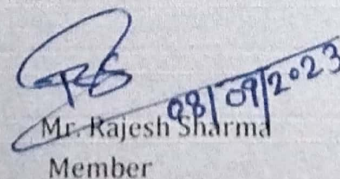 08/09/2023
Mr. Rajesh Sharma
Member